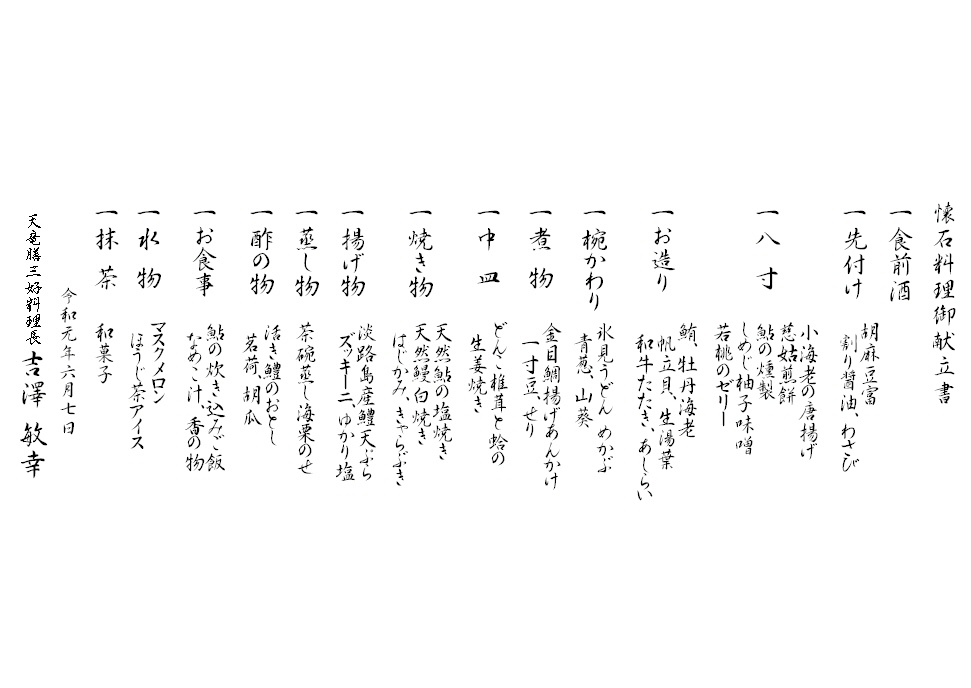 懐石料理御献立書
一食前酒
一先付け
胡麻豆富
割り醤油、わさび
一八寸
小海老の唐揚げ
慈姑煎餅
鮎の燻製
しめじ柚子味噌
若桃のゼリー
一お造り
鮪、牡丹海老
帆立貝、生湯葉
和牛たたき、あしらい
一椀かわり
氷見うどん めかぶ
青葱、山葵
一煮物
金目鯛揚げあんかけ
一寸豆、せり
一中皿
どんこ椎茸と蛤の
生姜焼き
一焼き物
天然鮎の塩焼き
天然鰻白焼き
はじかみ、きゃらぶき
一揚げ物
淡路島産鱧天ぷら
ズッキーニ、ゆかり塩
一蒸し物
茶碗蒸し海栗のせ
一酢の物
活き鱧のおとし
茗荷、胡瓜
一お食事
鮎の炊き込みご飯
なめこ汁、香の物
一水物
マスクメロン
ほうじ茶アイス
一抹茶
和菓子
令和元年六月七日
天竜膳三好料理長 吉澤 敏幸